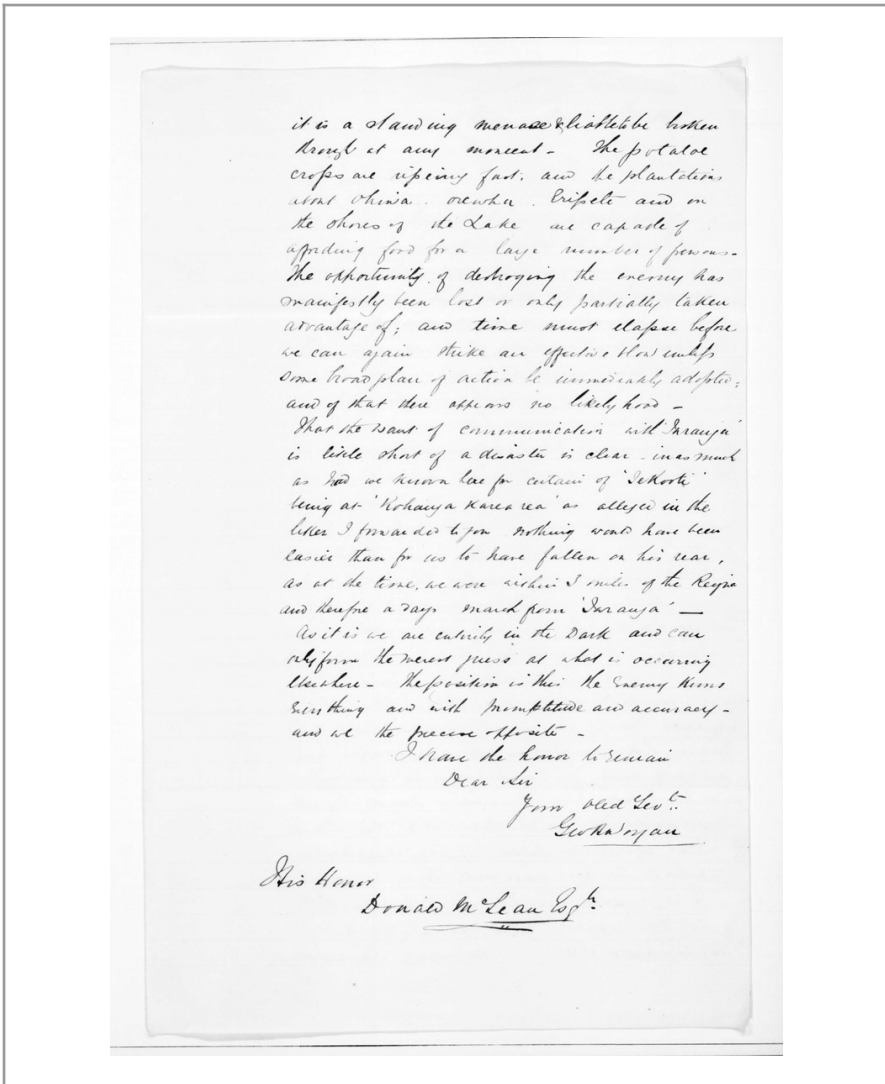 it is a standing menace & liable to be broken
through at any moment - The potatoe
crops are ripeing fast, and the plantations
about Ohiwa. and on
the shores of the Lake are capable of
affording food for a large number of persons -
The opportunity of destroying the enemy has
manifestly been lost or only partially taken
advantage of; and time must elapse before
we can again strike an effective blow unless
some broad plan of action be immediately adopted;
and of that there appears no likelyhood -
That the want of communication with 'Tauranga'
is little short of a disaster is clear - in as much
as had we known here for certain of 'TeKooti'
being at 'Kohanga Karearea' as alleged in the
letter I forwarded to you nothing would have been
easier than for us to have fallen on his rear,
as at the time, we were within 3 miles of the
and therefore a days march from 'Tauranga' —
As it is we are entirely in the Dark and can
only form the merest guess at what is occurring
elsewhere - The position is this the Enemy knows
Everything and with promptitude and accuracy -
and we the precise opposite -
I have the honor to remain
Dear Sir
Your Obed Sevt.
Geo
His Honor
Donald McLean Esqr.